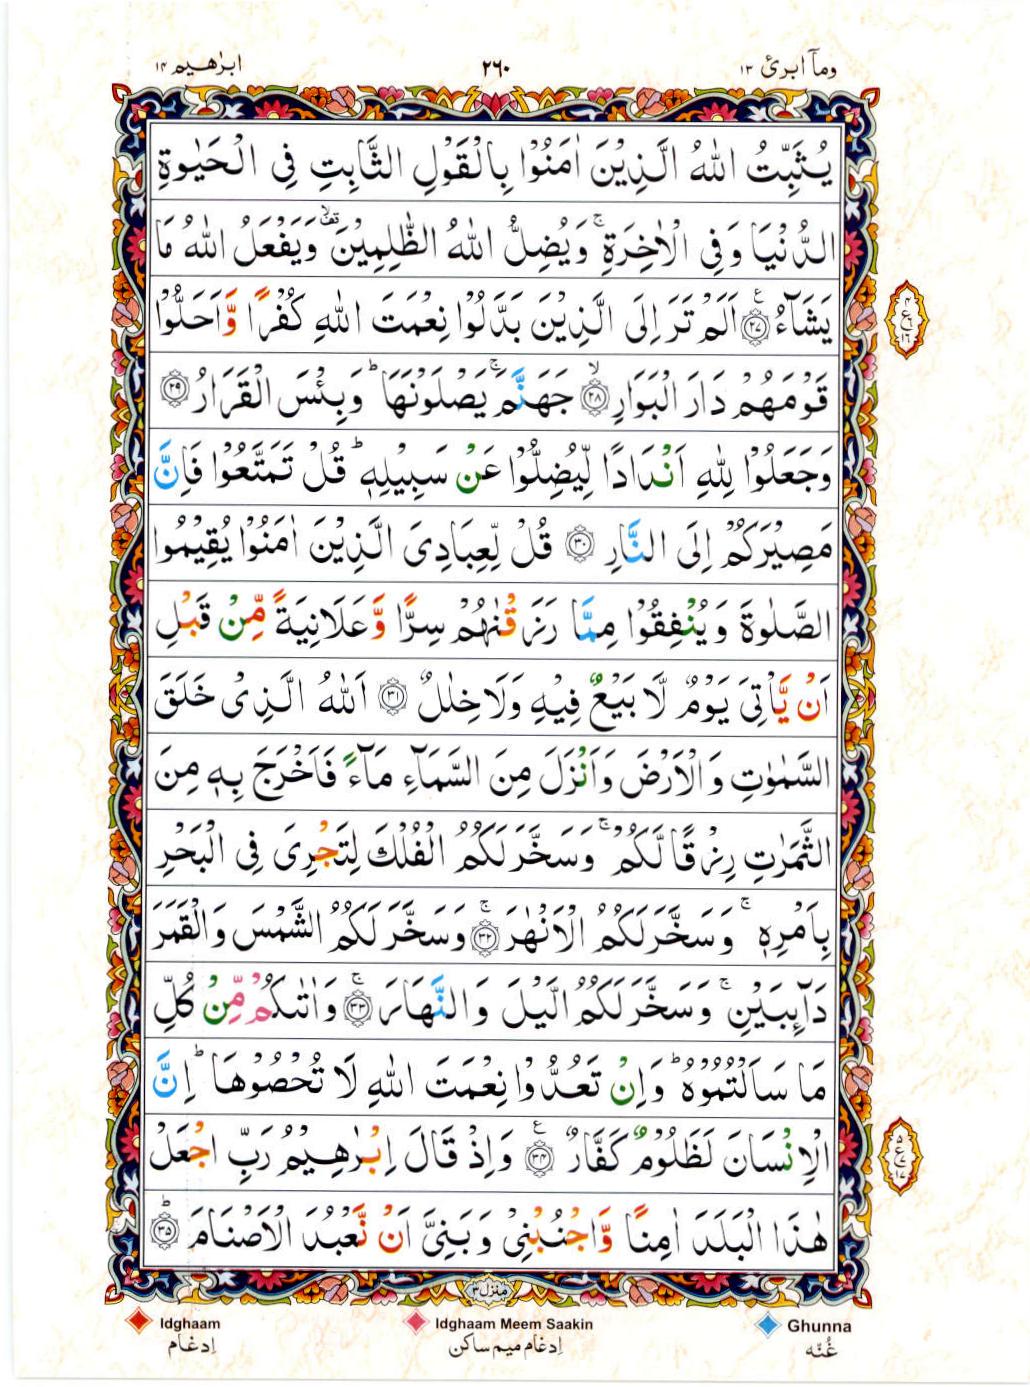 ابرٰهیم ۱۴
۲۶۰
ومآ ابرئ ۱۳
یُثَبِّتُ اللّٰهُ الَّذِیْنَ اٰمَنُوْا بِالْقَوْلِ الثَّابِتِ فِی الْحَیٰوةِ
الدُّنْیَا وَ فِی الْاٰخِرَةِ ۚ وَ یُضِلُّ اللّٰهُ الظّٰلِمِیْنَ ۙ۫ وَ یَفْعَلُ اللّٰهُ مَا
یَشَآءُ ﴿۲۷﴾ ع اَلَمْ تَرَ اِلَی الَّذِیْنَ بَدَّلُوْا نِعْمَتَ اللّٰهِ كُفْرًا وَّ اَحَلُّوْا
قَوْمَهُمْ دَارَ الْبَوَارِ ﴿ۙ۲۸﴾ جَهَنَّمَ ۚ یَصْلَوْنَهَا ؕ وَ بِئْسَ الْقَرَارُ ﴿۲۹﴾
وَ جَعَلُوْا لِلّٰهِ اَنْدَادًا لِّیُضِلُّوْا عَنْ سَبِیْلِهٖ ؕ قُلْ تَمَتَّعُوْا فَاِنَّ
مَصِیْرَكُمْ اِلَی النَّارِ ﴿۳۰﴾ قُلْ لِّعِبَادِیَ الَّذِیْنَ اٰمَنُوْا یُقِیْمُوا
الصَّلٰوةَ وَ یُنْفِقُوْا مِمَّا رَزَقْنٰهُمْ سِرًّا وَّ عَلَانِیَةً مِّنْ قَبْلِ
اَنْ یَّاْتِیَ یَوْمٌ لَّا بَیْعٌ فِیْهِ وَ لَا خِلٰلٌ ﴿۳۱﴾ اَللّٰهُ الَّذِیْ خَلَقَ
السَّمٰوٰتِ وَ الْاَرْضَ وَ اَنْزَلَ مِنَ السَّمَآءِ مَآءً فَاَخْرَجَ بِهٖ مِنَ
الثَّمَرٰتِ رِزْقًا لَّكُمْ ۚ وَ سَخَّرَ لَكُمُ الْفُلْكَ لِتَجْرِیَ فِی الْبَحْرِ
بِاَمْرِهٖ ۚ وَ سَخَّرَ لَكُمُ الْاَنْهٰرَ ﴿ۚ۳۲﴾ وَ سَخَّرَ لَكُمُ الشَّمْسَ وَ الْقَمَرَ
دَآىِٕبَیْنِ ۚ وَ سَخَّرَ لَكُمُ الَّیْلَ وَ النَّهَارَ ﴿ۚ۳۳﴾ وَ اٰتٰىكُمْ مِّنْ كُلِّ
مَا سَاَلْتُمُوْهُ ؕ وَ اِنْ تَعُدُّوْا نِعْمَتَ اللّٰهِ لَا تُحْصُوْهَا ؕ اِنَّ
الْاِنْسَانَ لَظَلُوْمٌ كَفَّارٌ ﴿۳۴﴾ ع وَ اِذْ قَالَ اِبْرٰهِیْمُ رَبِّ اجْعَلْ
هٰذَا الْبَلَدَ اٰمِنًا وَّ اجْنُبْنِیْ وَ بَنِیَّ اَنْ نَّعْبُدَ الْاَصْنَامَ ﴿ؕ۳۵﴾
منزل ۳
Idghaam
اِدغام
Idghaam Meem Saakin
اِدغام میم ساکن
Ghunna
غُنّه